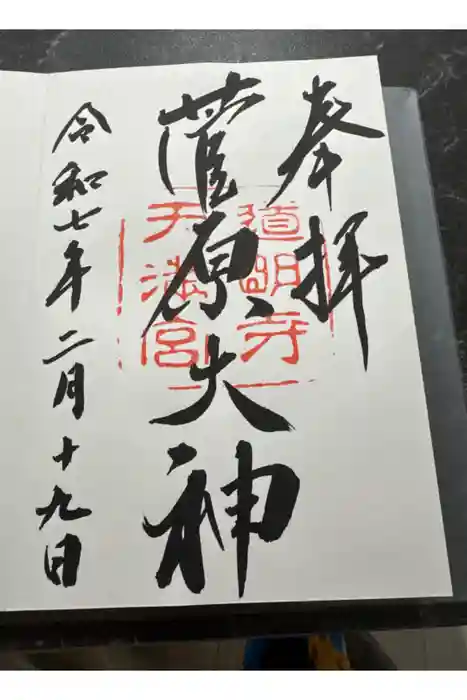 奉拝
菅原大神
道明寺
天満宮
令和七年二月十九日